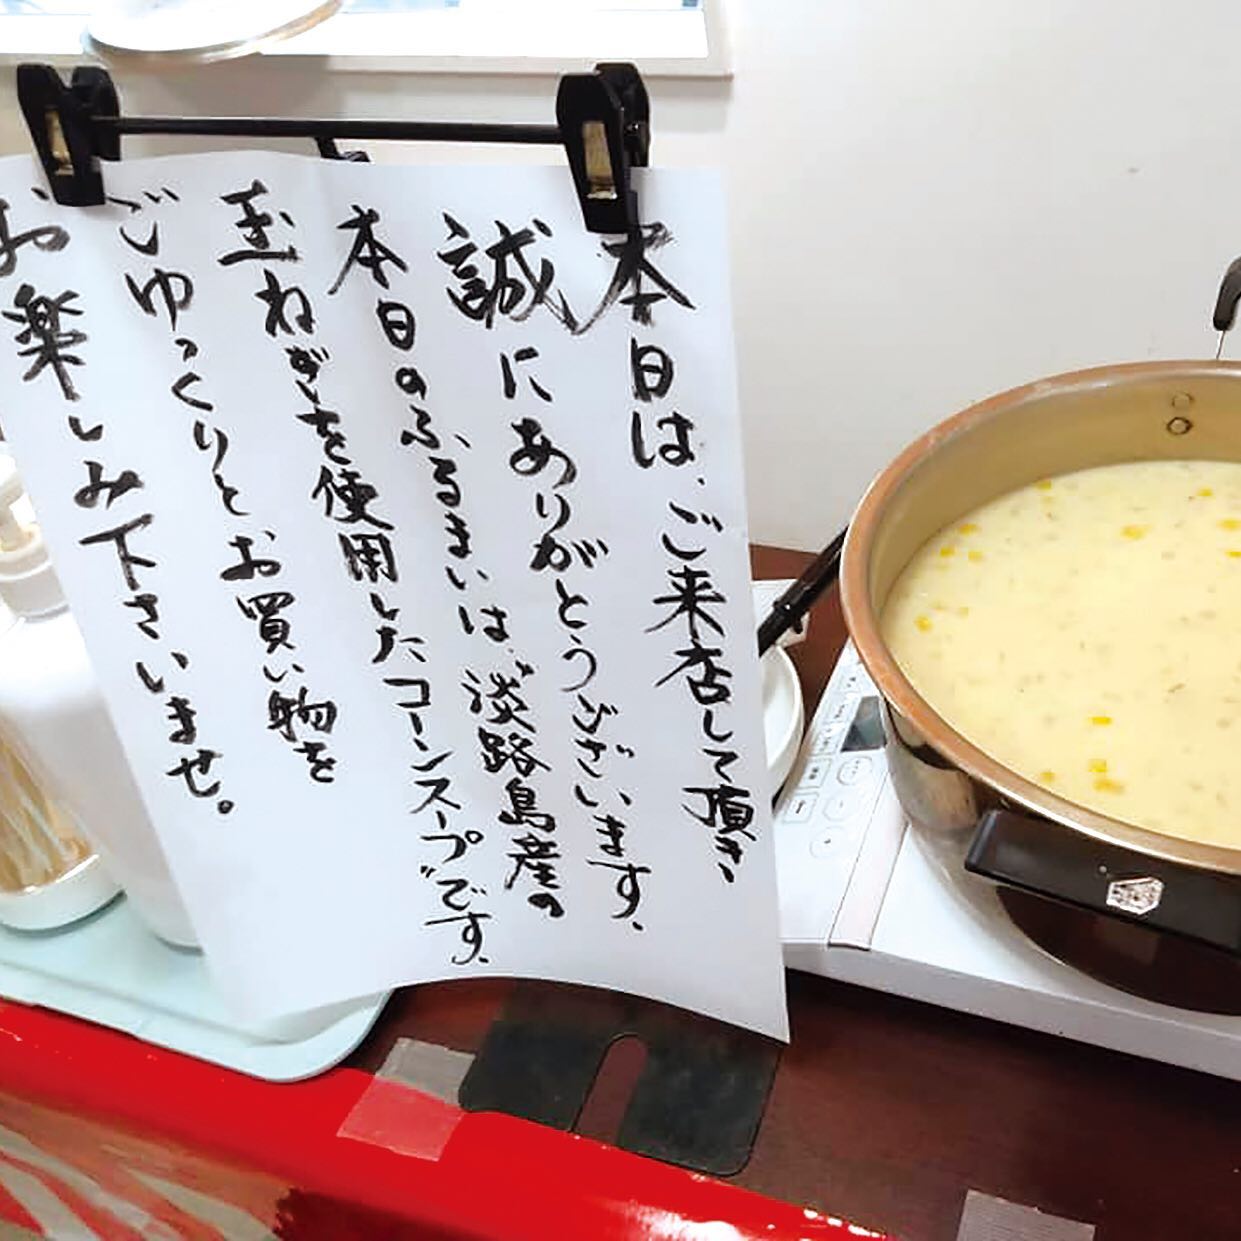 本日は、ご来店して頂き、
誠にありがとうございます。
本日のふるまいは、淡路島産の
玉ねぎを使用したコーンスープです。
ごゆっくりとお買い物を
お楽しみ下さいませ。